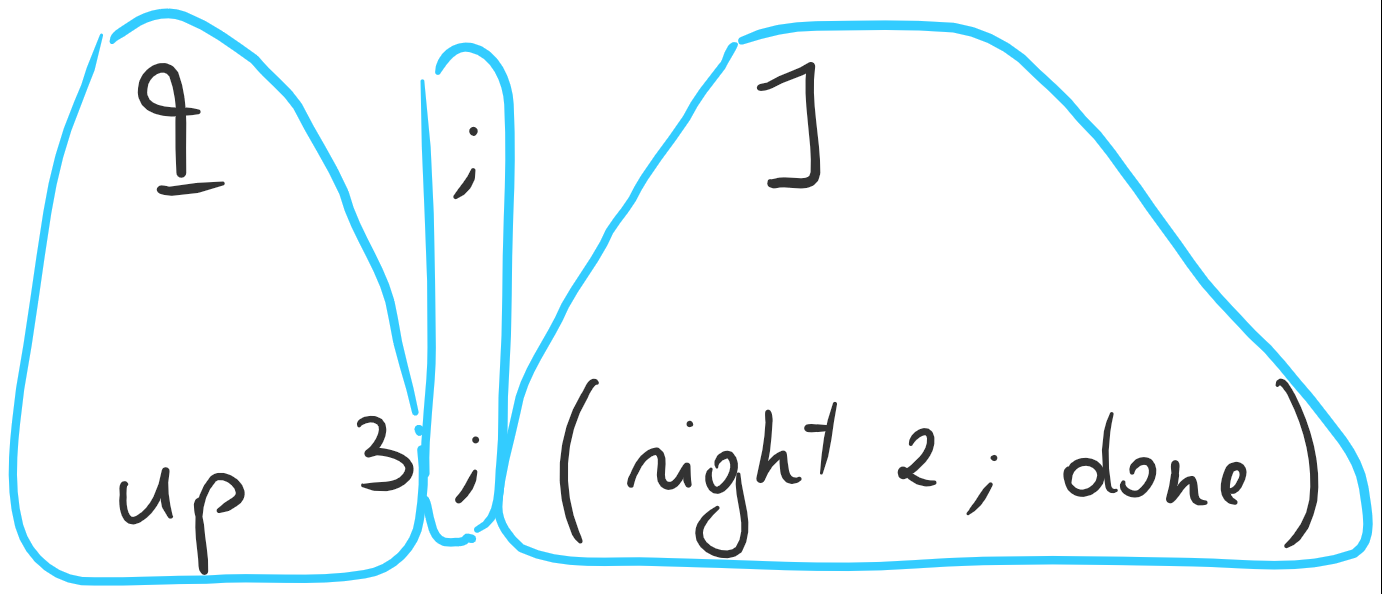 q ; ]
up 3 ; ( right 2 ; done )